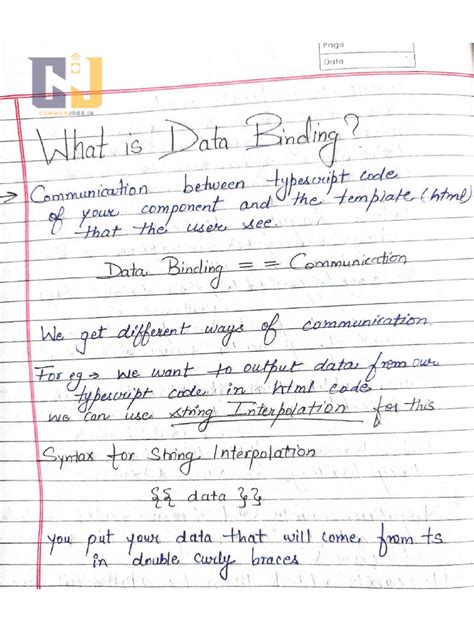 Page
Date
CJ
COMMONJOBS.IN
What is Data Binding?
→ Communication between typescript code
of your component and the template (html)
that the user see.
Data Binding == Communication
We get different ways of communication.
For eg → we want to output data from our
typescript code in html code.
we can use string Interpolation for this
Syntax for String Interpolation
{{ data }}
you put your data that will come from ts
in double curly braces